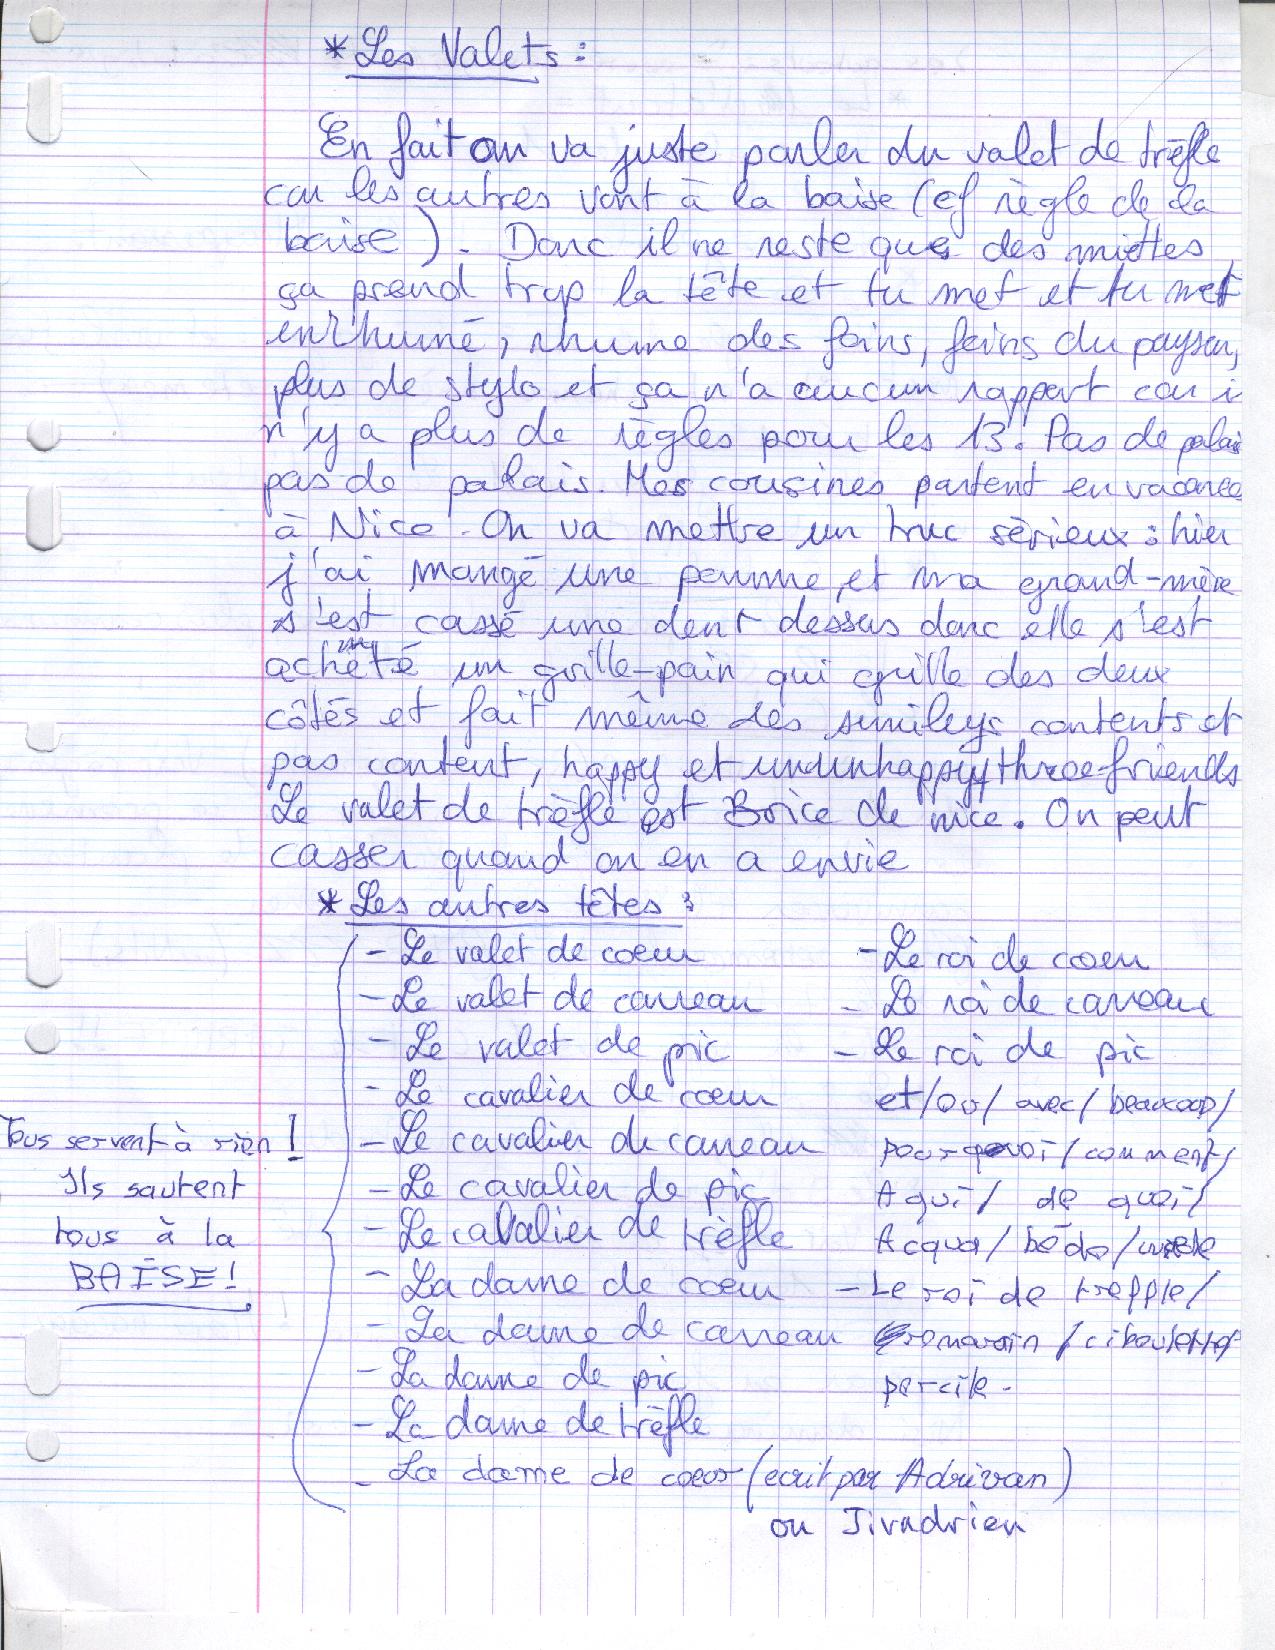 * Les Valets :
En fait on va juste parler du valet de trèfle
car les autres vont à la baise (cf règle de la
baise). Donc il ne reste que des miettes,
ça prend trop la tête et tu met et tu met
enrhumé, rhume des foins, foins du paysan,
plus de stylo et ça n'a aucun rapport car i
n'y a plus de règles pour les 13. Pas de palais
pas de palais. Mes cousines partent en vacance
à Nice. On va mettre un truc sérieux : hier
j'ai mangé une pomme et ma grand-mère
s'est cassé une dent dessus donc elle s'est
achété un grille-pain qui grille des deux
côtés et fait même des smileys contents et
pas content, happy et three-friends
Le valet de trèfle est Brice de nice. On peut
casser quand on en a envie
* Les autres têtes :
- Le valet de coeur
- Le valet de carreau
- Le valet de pic
- Le cavalier de coeur
- Le cavalier de carreau
- Le cavalier de pic
- Le cavalier de trèfle
- La dame de coeur
- La dame de carreau
- La dame de pic
- La dame de trèfle
- La dame de coeur (ecrit par Adrivan)
ou Jivadrien
- Le roi de coeur
- Le roi de carreau
- Le roi de pic
et/ou/avec/beaucoup/
pourquoi/comment/
A qui/ de quoi/
Acqua/bédo/
- Le roi de trefple/
romarin/ciboulette/
percile.
Tous servent à rien !
Ils sautent
tous à la
BAISE !